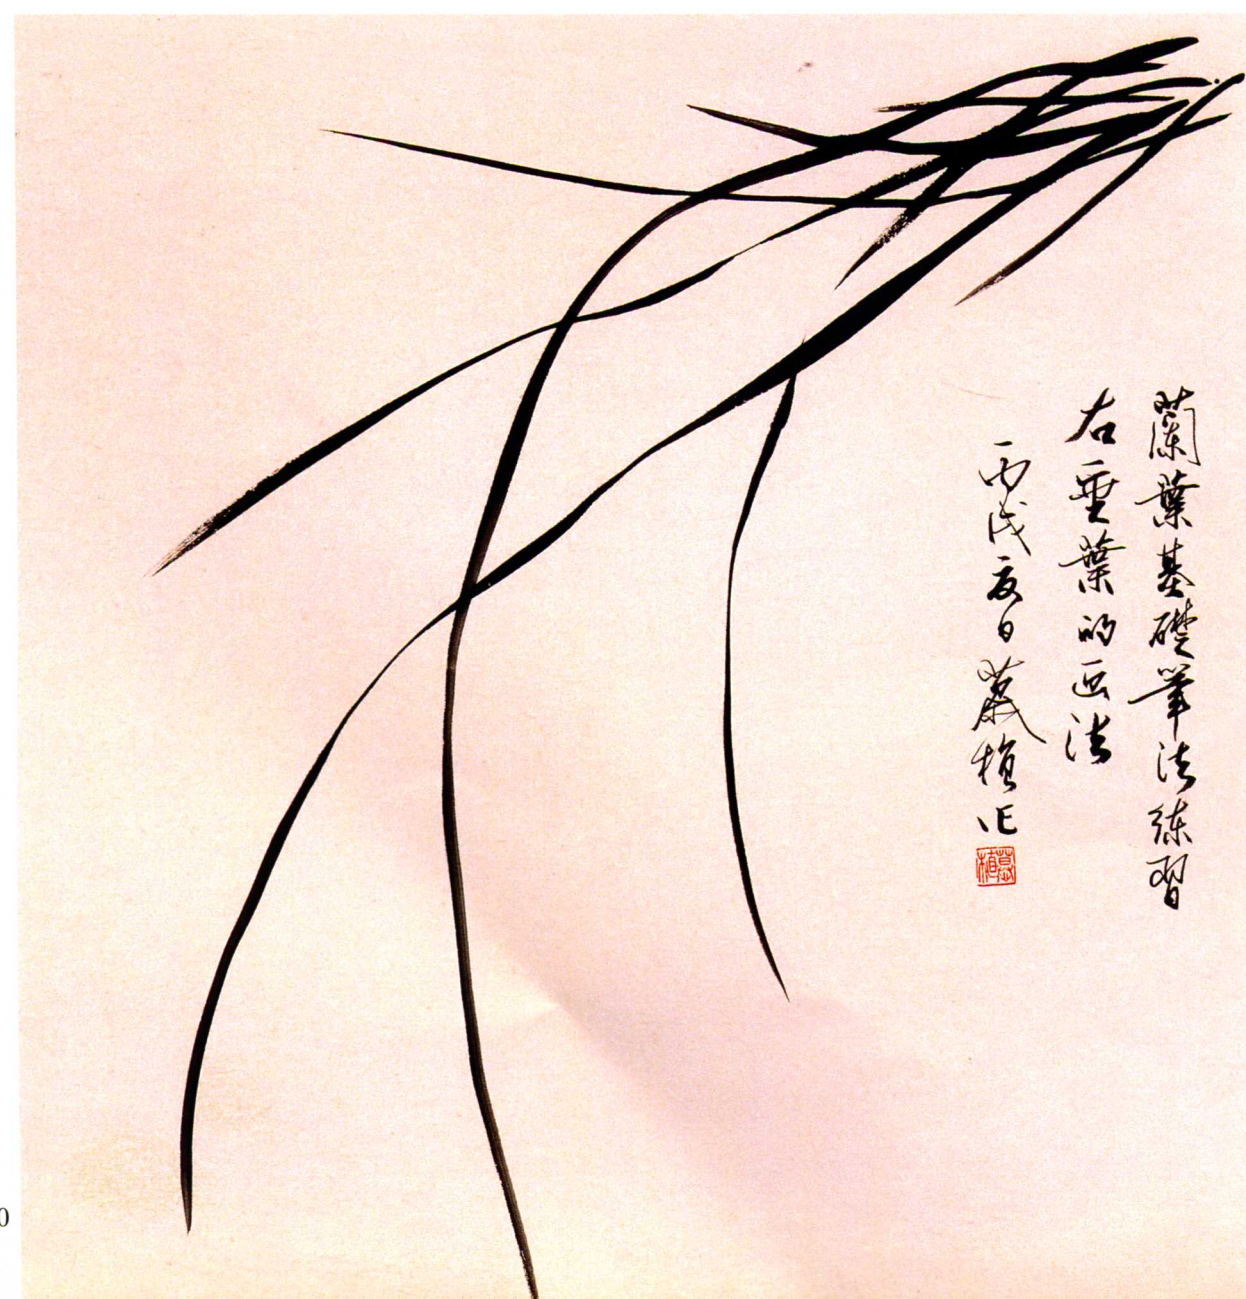 蘭葉基礎筆法練習
右垂葉的画法
丙戌夏日荿植作
0